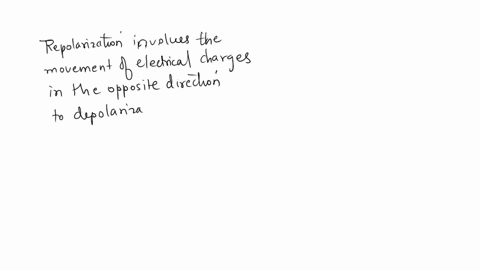 Repolarization involves the
movement of electrical charges
in the opposite direction
to depolariza